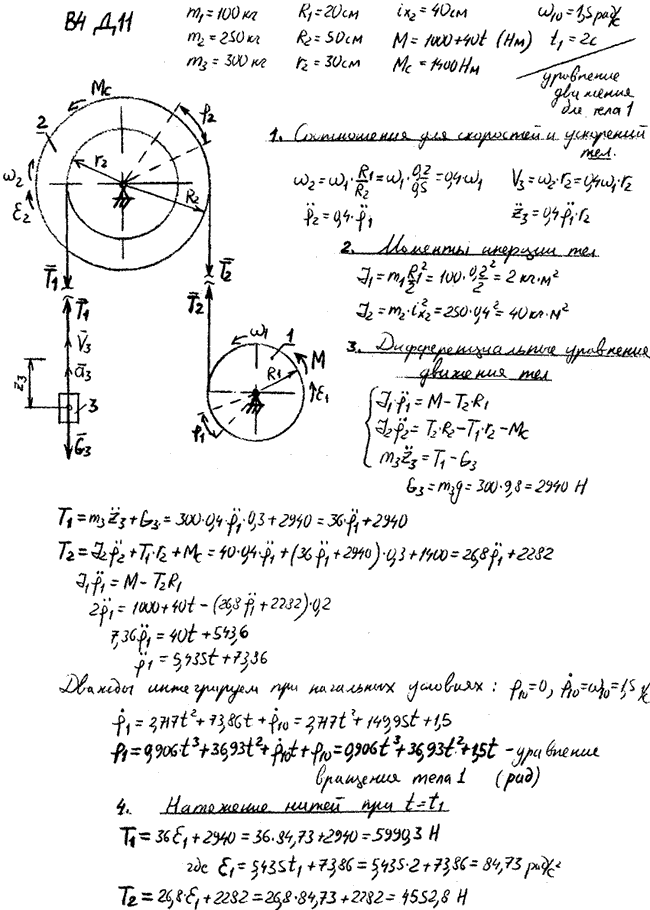 В4 Д11
m₁=100кг R₁=20см iₓ₂=40см ω₁₀=1,5рад/с
m₂=250кг R₂=50см M=1000+40t (Нм) t₁=2с
m₃=300кг r₂=30см Mc=1400Нм
уравнение
движения
для тела 1
Mc
2
φ₂
r₂
R₂
ω₂
ε₂
T̄₁
T̄₂
T̄₁
T̄₂
V̄₃
ā₃
z₃
3
Ḡ₃
ω₁
1
M
R₁
ε₁
φ₁
1. Соотношения для скоростей и ускорений
тел.
ω₂=ω₁·R₁/R₂=ω₁·0,2/0,5=0,4ω₁ V₃=ω₂·r₂=0,4ω₁·r₂
φ̈₂=0,4·φ̈₁ z̈₃=0,4φ̈₁·r₂
2. Моменты инерции тел
J₁=m₁R₁²/2=100·0,2²/2=2 кг·м²
J₂=m₂·iₓ₂²=250·0,4²=40кг·м²
3. Дифференциальные уравнения
движения тел
J₁·φ̈₁=M-T₂·R₁
J₂φ̈₂=T₂·R₂-T₁·r₂-Mc
m₃z̈₃=T₁-G₃
G₃=m₃g=300·9,8=2940 Н
T₁=m₃z̈₃+G₃=300·0,4·φ̈₁·0,3+2940=36·φ̈₁+2940
T₂=J₂φ̈₂+T₁·r₂+Mc=40·0,4·φ̈₁+(36φ̈₁+2940)·0,3+1400=26,8φ̈₁+2282
J₁φ̈₁=M-T₂R₁
2φ̈₁=1000+40t-(26,8φ̈₁+2282)·0,2
7,36φ̈₁=40t+543,6
φ̈₁=5,435t+73,86
Дважды интегрируем при начальных условиях: φ₁₀=0, φ̇₁₀=ω₁₀=1,5 1/с
φ̇₁=2,717t²+73,86t+φ̇₁₀=2,717t²+149,95t+1,5
φ₁=0,906t³+36,93t²+φ̇₁₀t+φ₁₀=0,906t³+36,93t²+1,5t - уравнение
вращения тела 1 (рад)
4. Натяжение нитей при t=t₁
T₁=36ε₁+2940=36·84,73+2940=5990,3 Н
где ε₁=5,435t₁+73,86=5,435·2+73,86=84,73 рад/с²
T₂=26,8·ε₁+2282=26,8·84,73+2282=4552,8 Н